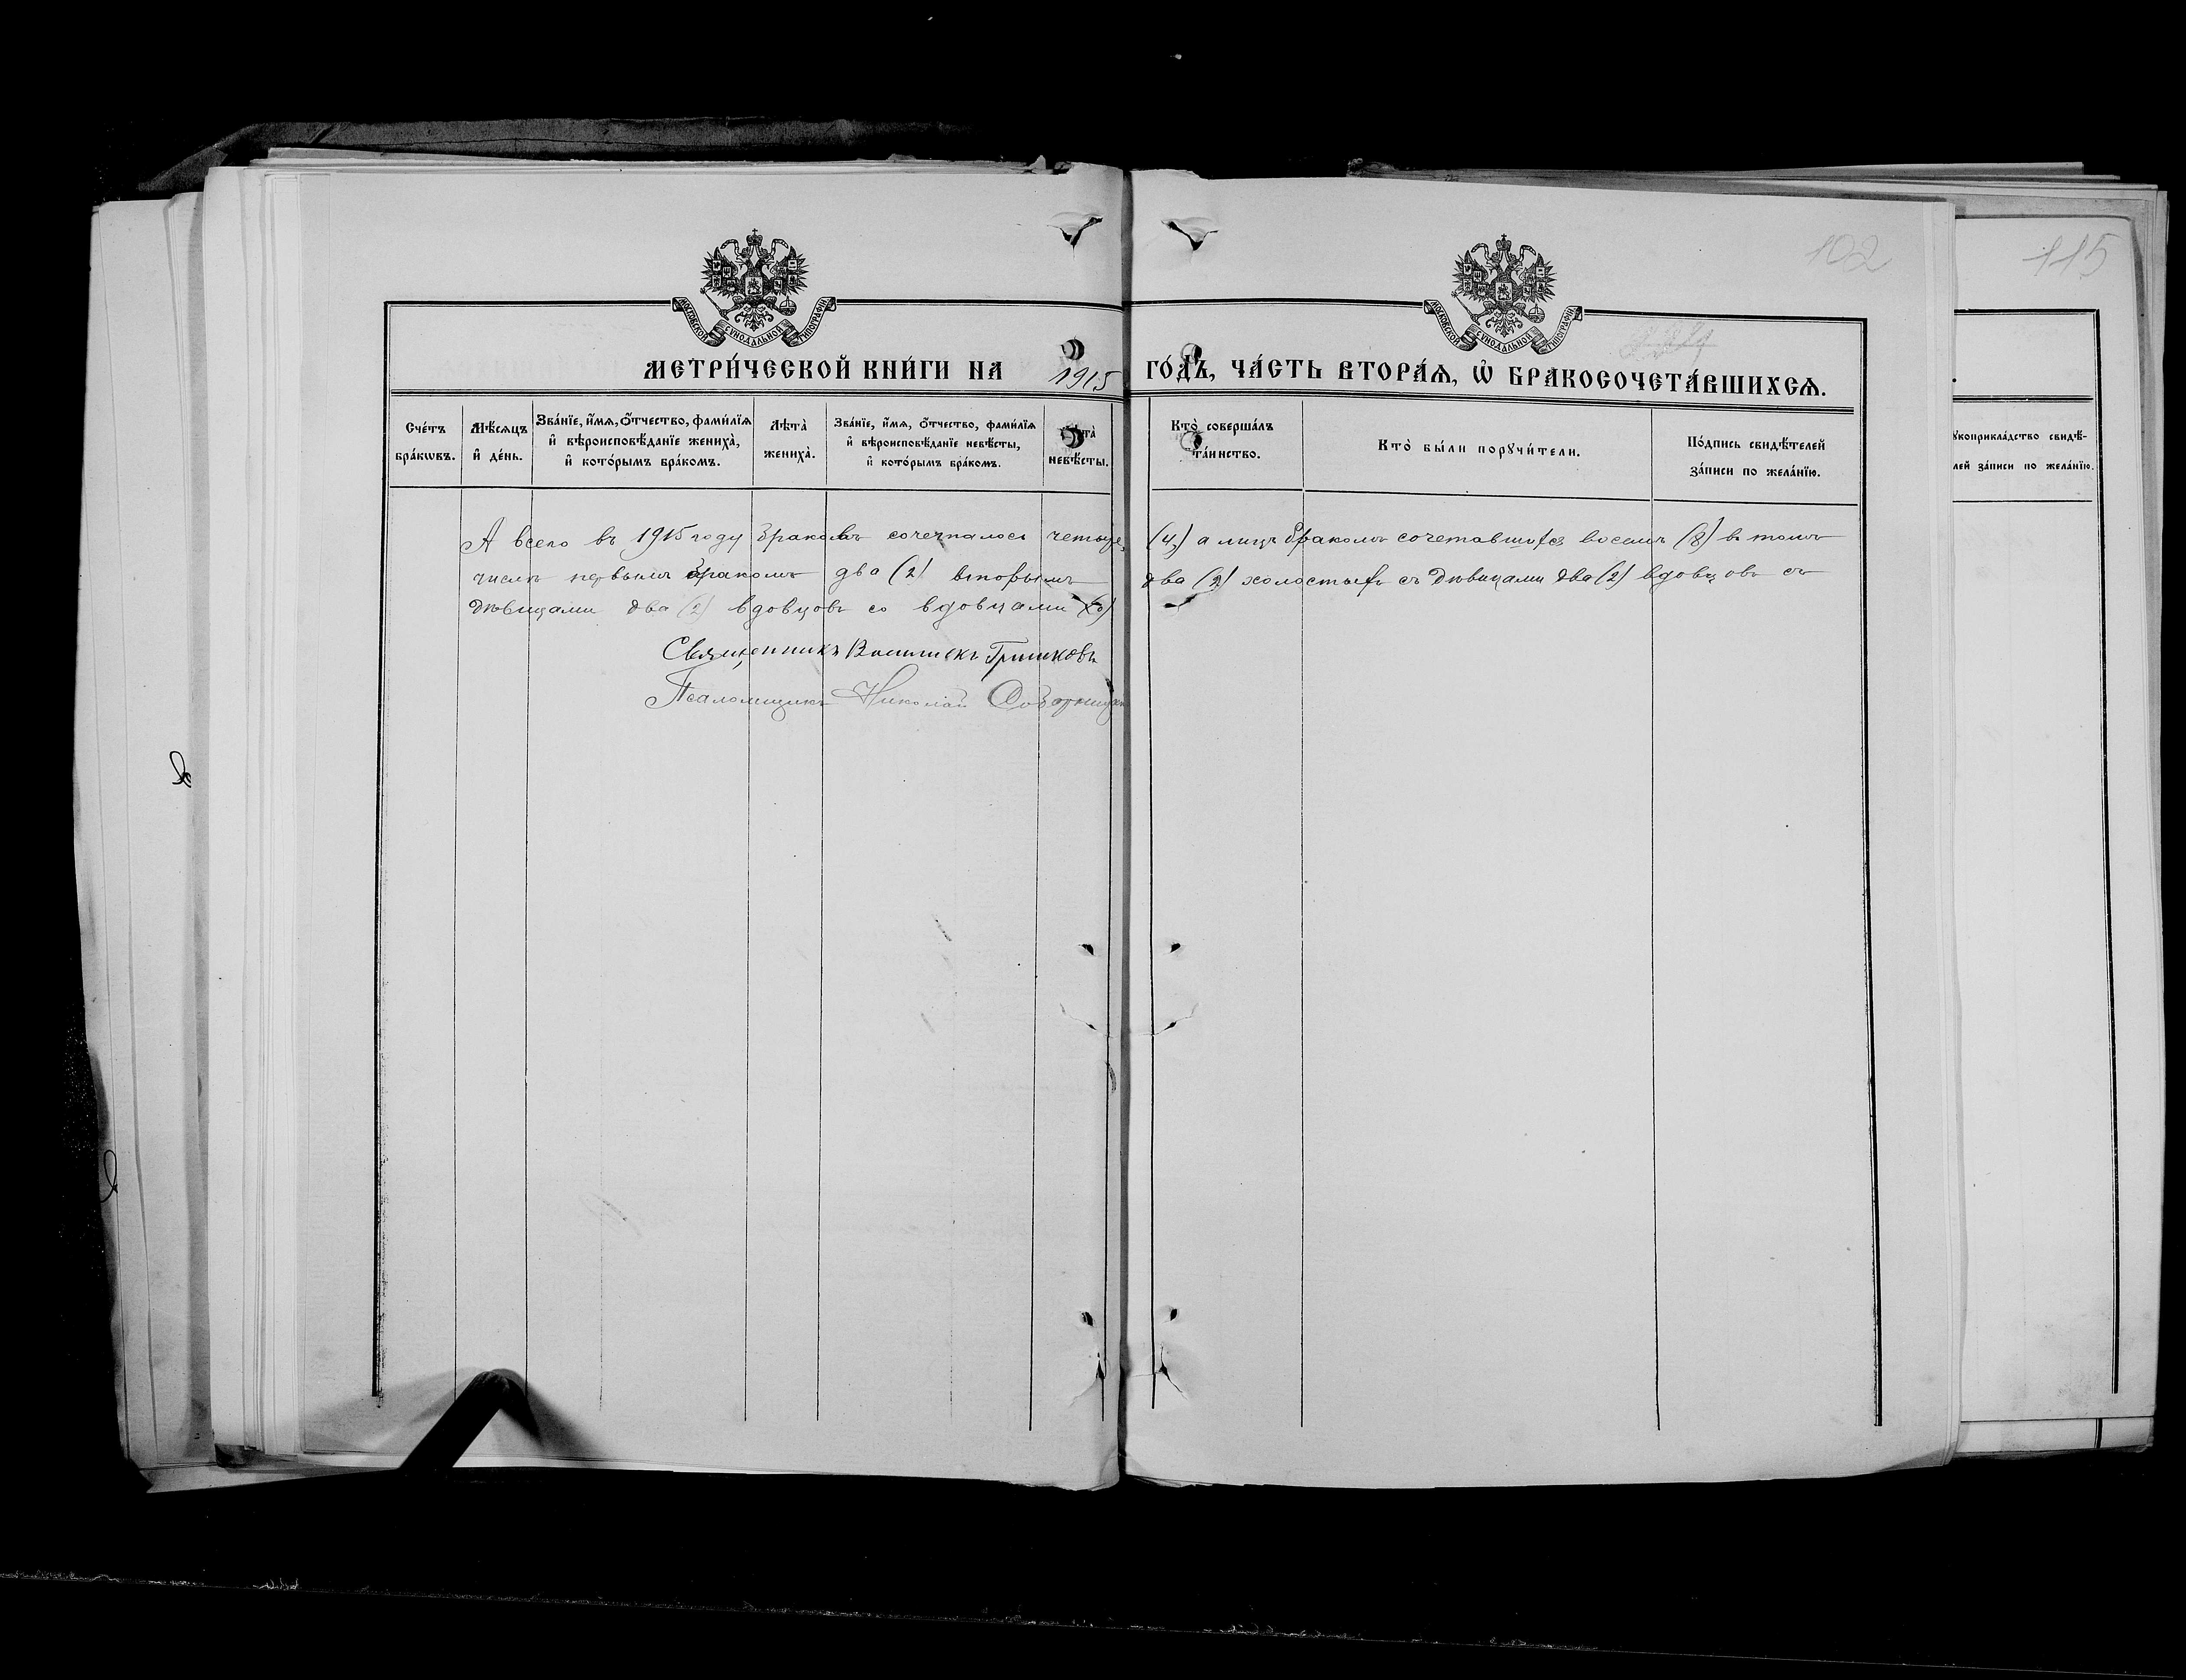 МОСКОВСКОЙ СУНОДАЛЬНОЙ ТИПОГРАФІИ
МОСКОВСКОЙ СУНОДАЛЬНОЙ ТИПОГРАФІИ
102
115
МЕТРИ́ЧЕСКОЙ КНИ́ГИ НА 1915 ГО́ДЪ, ЧА́СТЬ ВТОРА́Я, Ѡ҆ БРАКОСОЧЕТА́ВШИХСЯ.
Сче́тъ
бра́кѡвъ.
Мѣ́сяцъ
и҆ де́нь.
Зва́нїе, и҆́мя, ѻ҆́тчество, фами́лїя
и҆ вѣроисповѣ́данїе жениха̀,
и҆ кото́рымъ бра́комъ.
Лѣта̀
жениха̀.
Зва́нїе, и҆́мя, ѻ҆́тчество, фами́лїя
и҆ вѣроисповѣ́данїе невѣ́сты,
и҆ кото́рымъ бра́комъ.
Лѣта̀
невѣ́сты.
Кто̀ соверша́лъ
та́инство.
Кто̀ бы́ли порꙋчи́тели.
По́дпись свидѣ́телей
за́писи по жела́нїю.
ꙋкоприкла́дство свидѣ́-
лей за́писи по жела́нїю.
А всего въ 1915 году браковъ сочеталось четыре (4,) а лицъ бракомъ сочетавшихся восемь (8) въ томъ
числѣ первымъ бракомъ два (2) вторымъ два (2) холостыхъ съ дѣвицами два (2) вдовцовъ съ
дѣвицами два (2) вдовцовъ со вдовцами (0)
Священникъ Гришковъ
Псаломщикъ Николай